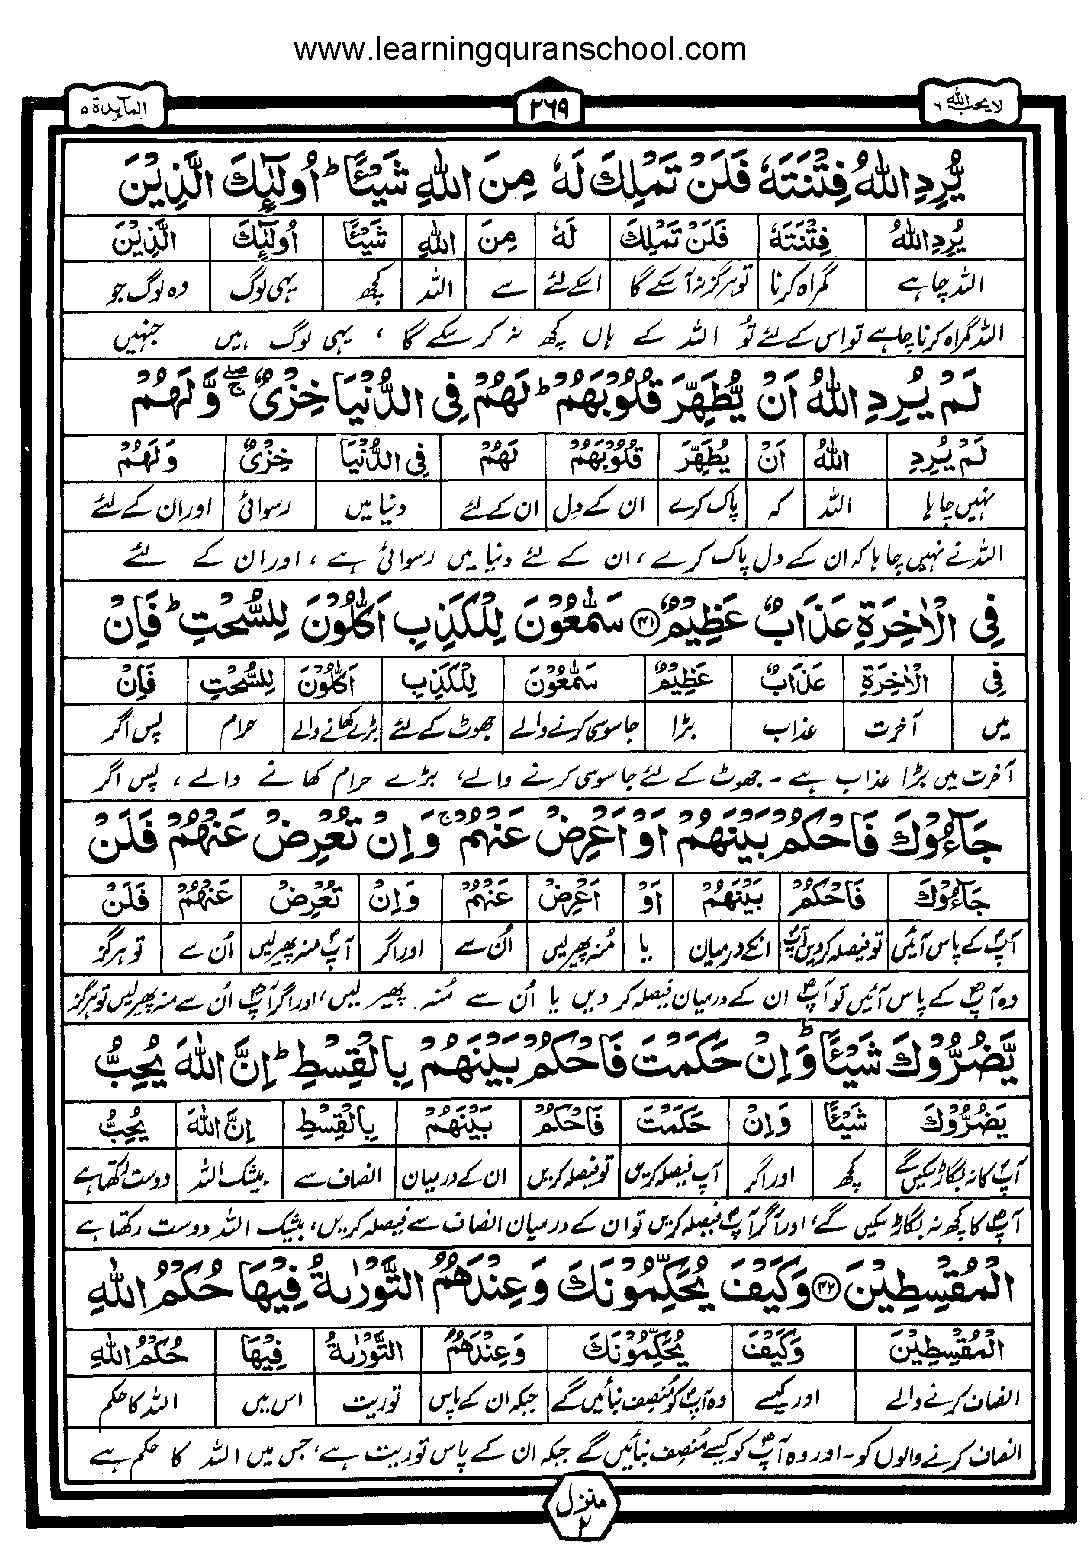 www.learningquranschool.com
لا يحب الله ٦
٢٦٩
المآئدة ٥
يُّرِدِ اللّٰهُ فِتْنَتَهٗ فَلَنْ تَمْلِكَ لَهٗ مِنَ اللّٰهِ شَيْـًٔا ؕ اُولٰٓئِكَ الَّذِيْنَ
يُرِدِ اللّٰهُ فِتْنَتَهٗ فَلَنْ تَمْلِكَ لَهٗ مِنَ اللّٰهِ شَيْـًٔا اُولٰٓئِكَ الَّذِيْنَ
اللہ چاہے گمراہ کرنا تو ہرگز نہ آسکے گا اسکے لئے سے اللہ کچھ یہی لوگ وہ لوگ جو
اللہ گمراہ کرنا چاہے تو اس کے لئے تُو اللہ کے ہاں کچھ نہ کر سکے گا ، یہی لوگ ہیں جنہیں
لَمْ يُرِدِ اللّٰهُ اَنْ يُّطَهِّرَ قُلُوْبَهُمْ ؕ لَهُمْ فِي الدُّنْيَا خِزْىٌ ۖۚ وَّلَهُمْ
لَمْ يُرِدِ اللّٰهُ اَنْ يُطَهِّرَ قُلُوْبَهُمْ لَهُمْ فِي الدُّنْيَا خِزْىٌ وَلَهُمْ
نہیں چاہا اللہ کہ پاک کرے ان کے دل ان کے لئے دنیا میں رسوائی اور ان کے لئے
اللہ نے نہیں چاہا کہ ان کے دل پاک کرے ، ان کے لئے دنیا میں رسوائی ہے ، اور ان کے لئے
فِي الْاٰخِرَةِ عَذَابٌ عَظِيْمٌ ﴿۴۱﴾ سَمّٰعُوْنَ لِلْكَذِبِ اَكّٰلُوْنَ لِلسُّحْتِ ؕ فَاِنْ
فِي الْاٰخِرَةِ عَذَابٌ عَظِيْمٌ سَمّٰعُوْنَ لِلْكَذِبِ اَكّٰلُوْنَ لِلسُّحْتِ فَاِنْ
میں آخرت عذاب بڑا جاسوسی کرنے والے جھوٹ کے لئے بڑے کھانے والے حرام پس اگر
آخرت میں بڑا عذاب ہے - جھوٹ کے لئے جاسوسی کرنے والے، بڑے حرام کھانے والے ، پس اگر
جَآءُوْكَ فَاحْكُمْ بَيْنَهُمْ اَوْ اَعْرِضْ عَنْهُمْ ۚ وَاِنْ تُعْرِضْ عَنْهُمْ فَلَنْ
جَآءُوْكَ فَاحْكُمْ بَيْنَهُمْ اَوْ اَعْرِضْ عَنْهُمْ وَاِنْ تُعْرِضْ عَنْهُمْ فَلَنْ
آپؐ کے پاس آئیں تو فیصلہ کر دیں آپؐ انکے درمیان یا مُنہ پھیر لیں اُن سے اور اگر آپؐ منہ پھیر لیں اُن سے تو ہرگز
وہ آپؐ کے پاس آئیں تو آپؐ ان کے درمیان فیصلہ کر دیں یا اُن سے مُنہ پھیر لیں، اور اگر آپؐ اُن سے منہ پھیر لیں تو ہرگز
يَّضُرُّوْكَ شَيْـًٔا ؕ وَاِنْ حَكَمْتَ فَاحْكُمْ بَيْنَهُمْ بِالْقِسْطِ ؕ اِنَّ اللّٰهَ يُحِبُّ
يَضُرُّوْكَ شَيْـًٔا وَاِنْ حَكَمْتَ فَاحْكُمْ بَيْنَهُمْ بِالْقِسْطِ اِنَّ اللّٰهَ يُحِبُّ
آپؐ کا نہ بگاڑ سکیں گے کچھ اور اگر آپ فیصلہ کریں تو فیصلہ کریں ان کے درمیان انصاف سے بیشک اللہ دوست رکھتا ہے
آپؐ کا کچھ نہ بگاڑ سکیں گے، اور اگر آپؐ فیصلہ کریں تو ان کے درمیان انصاف سے فیصلہ کریں، بیشک اللہ دوست رکھتا ہے
الْمُقْسِطِيْنَ ﴿۴۲﴾ وَكَيْفَ يُحَكِّمُوْنَكَ وَعِنْدَهُمُ التَّوْرٰىةُ فِيْهَا حُكْمُ اللّٰهِ
الْمُقْسِطِيْنَ وَكَيْفَ يُحَكِّمُوْنَكَ وَعِنْدَهُمُ التَّوْرٰىةُ فِيْهَا حُكْمُ اللّٰهِ
انصاف کرنے والے اور کیسے وہ آپؐ کو منصف بنائیں گے جبکہ ان کے پاس توریت اس میں اللہ کا حکم
انصاف کرنے والوں کو - اور وہ آپؐ کو کیسے مُنصف بنائیں گے جبکہ ان کے پاس توریت ہے، جس میں اللہ کا حکم ہے
منزل ٢